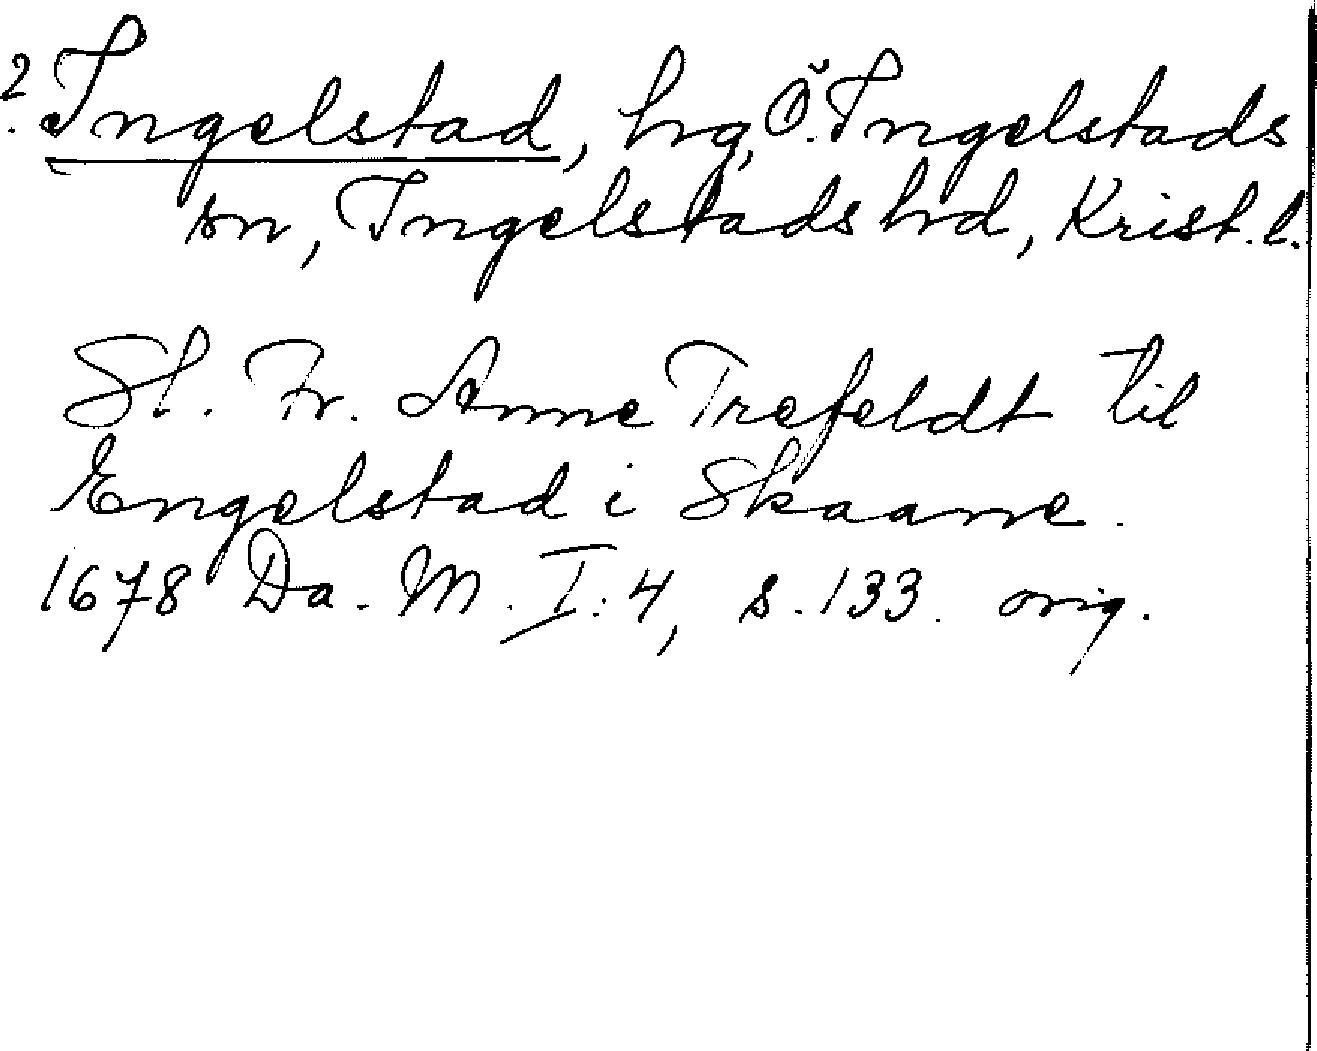 2. Ingelstad, hrg, Ö. Ingelstads
sn, Ingelstads hrd, Krist. l.
Sl. Fr. Anne Trefeldt til
Engelstad i Skaane.
1678 Da. M. I: 4, s. 133. orig.